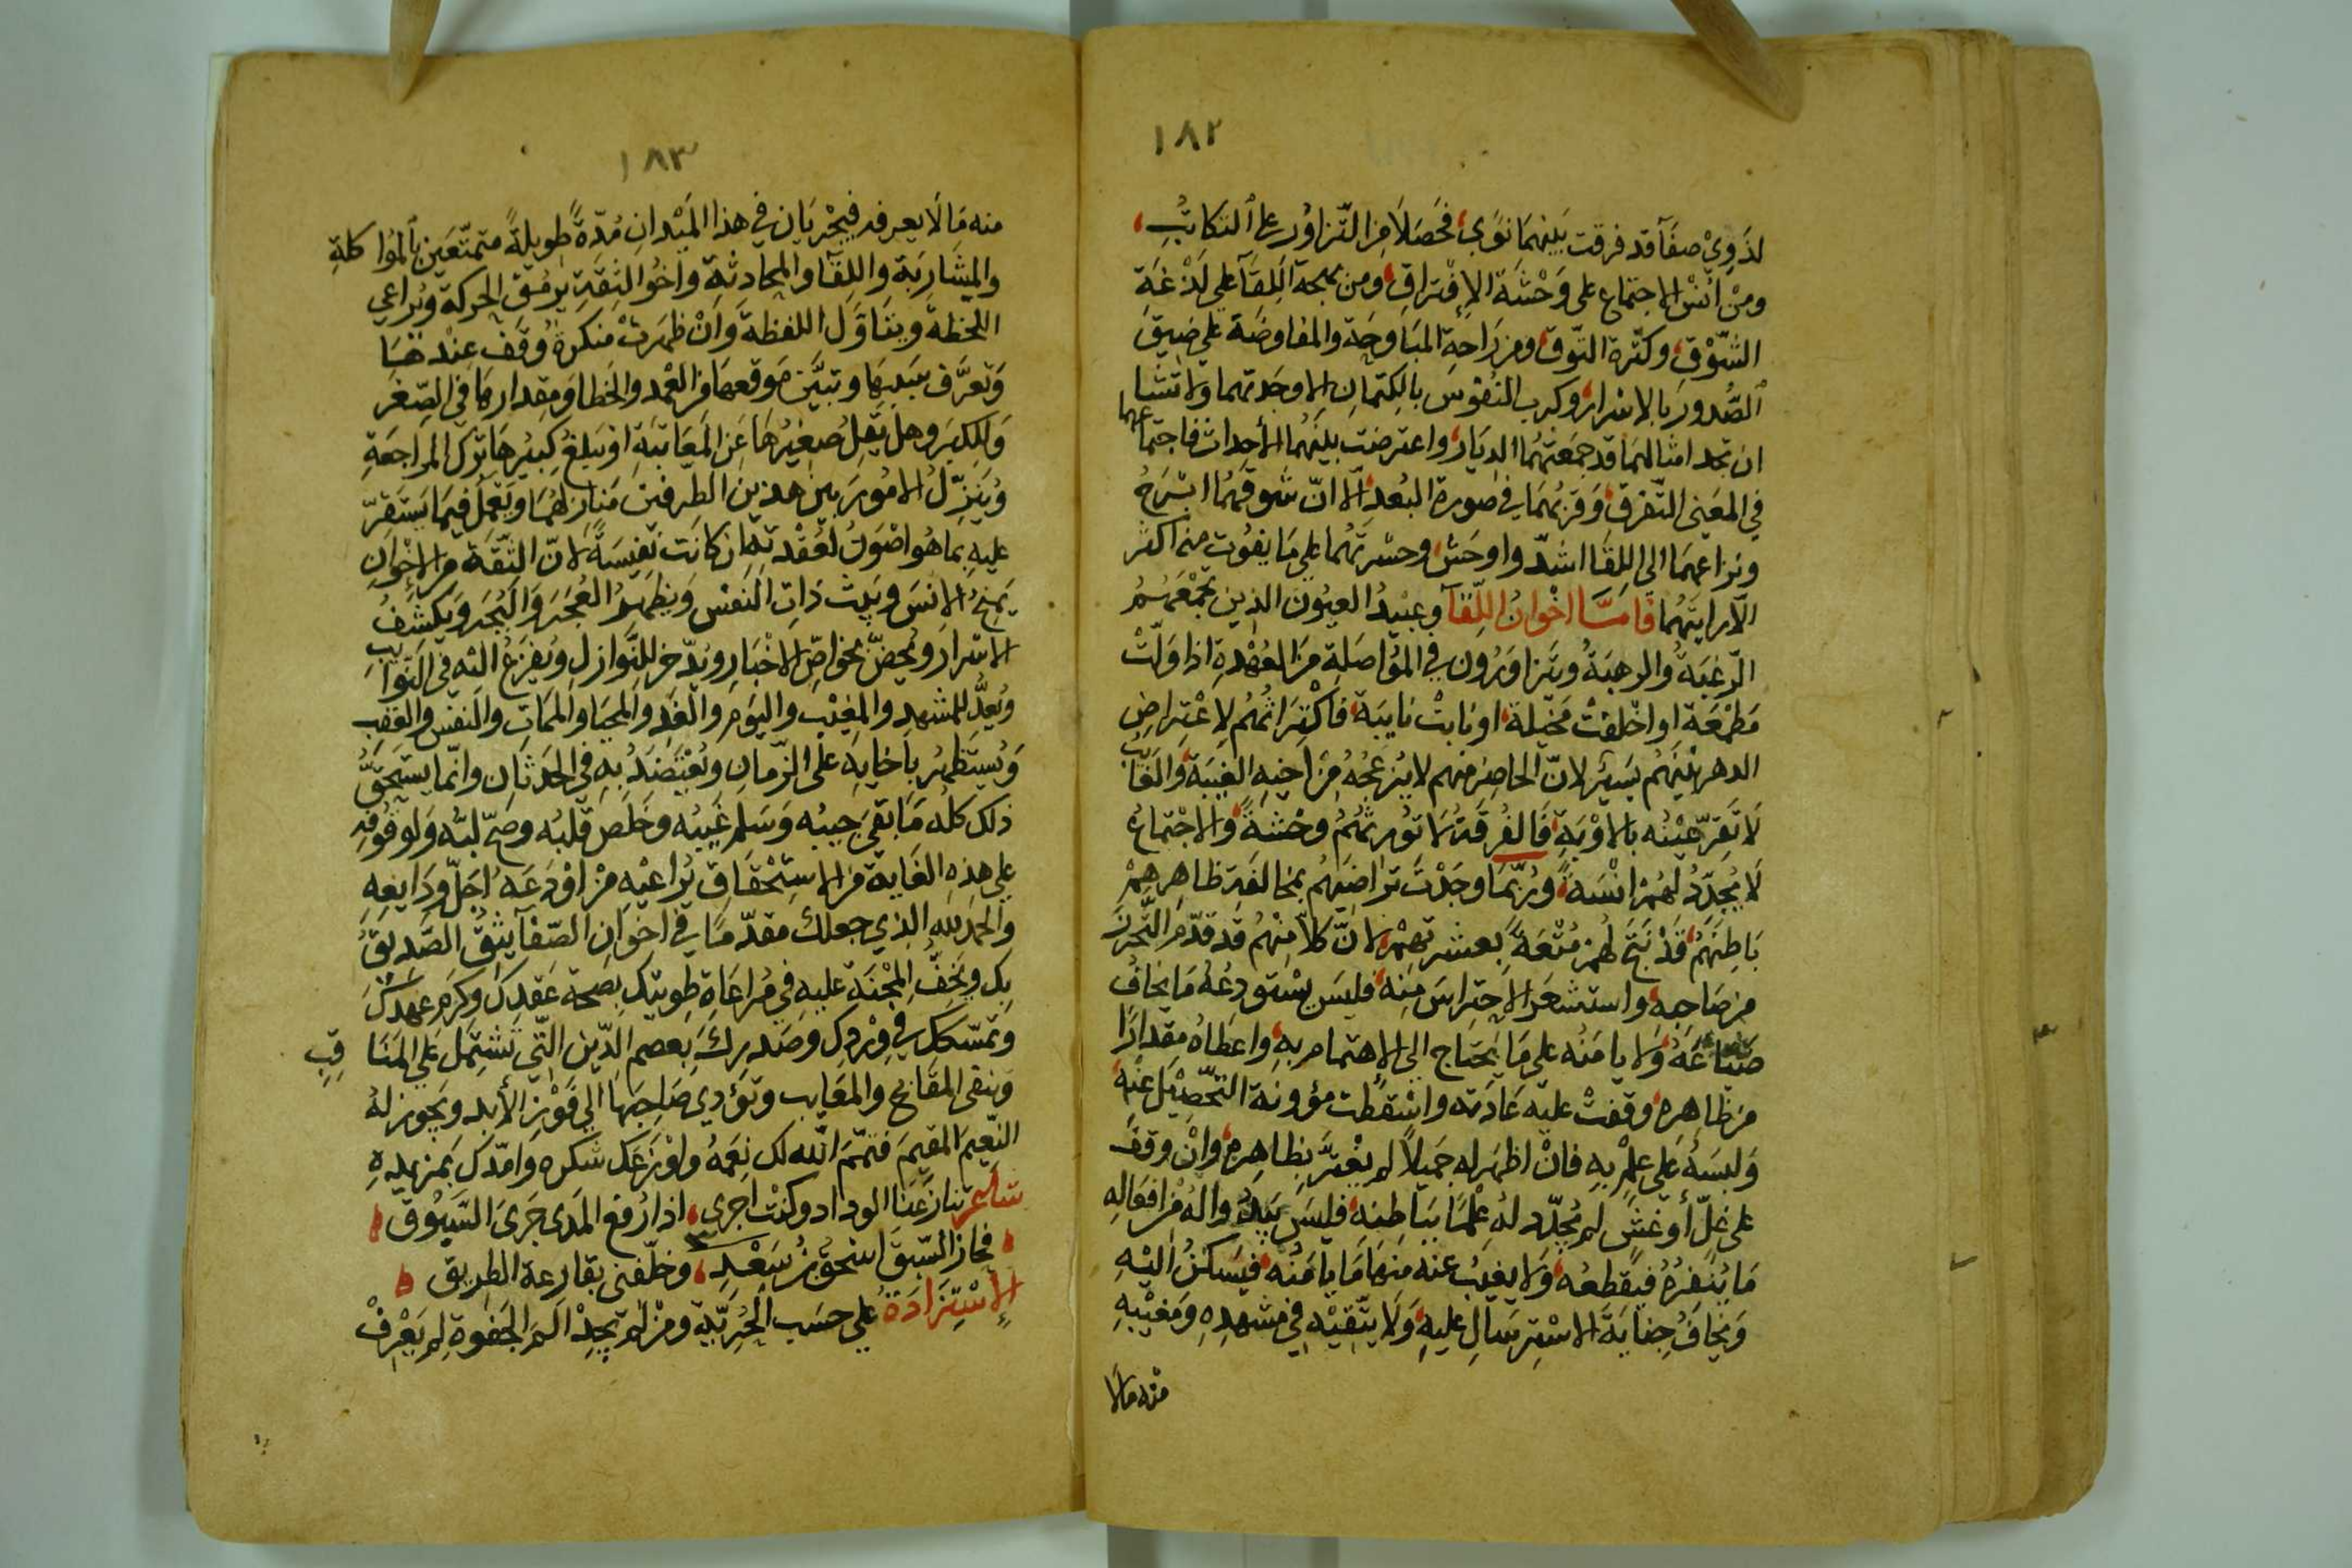 ١٨٢
لذوي صفآ قد فرقت بينهما نوى، فحصلا من التزاور على التكاتب،
ومن انس الاجتماع على وحشة الإفتراق، ومن بهجة اللقآ على لذعة
الشوق، وكثرة التوق، ومن راحة المباوحة والمفاوضة على ضيق
الصدور بالاسرار، وكرب النفوس بالكتمان الا وجدتهما ولا تشا
ان تجد امثالهما قد جمعتهما الديار، واعترضت بينهما الأحداث فاجتماعهما
في المعنى التفرق، وقربهما في صورة البعد، الا ان شوقهما ابرح
ونزاعهما الى اللقا اشد واوحش، وحسرتهما على ما يفوت منه اكثر
الا رايتهما فامـا اخوان اللقآ وعبيد العيون الذين تجمعهم
الرغبة والرهبة ويتزاورون في المواصلة من العهدة اذا ولت
مطمعة او اخلفت مخيلة، او نابت نايبة، فاكتراثهم لاعتراض
الدهر بينهم يسير لان الحاضر منهم لا يزعجه من اخيه الغيبة، والغايب
لا تقر عينه بالاوبة، فالفرقة لا تورثهم وحشة، والاجتماع
لا يجدد لهم انسة، وربما وجدت تراضيهم بمخالفة ظاهرهم
باطنهم، قد نتج لهم متعة بعشرتهم، لان كلا منهم قد قدم التحرز
من صاحبه، واستشعر الاحتراس منه، فليس يستودعه ما يخاف
ضياعه، ولا يامنه على ما يحتاج الى الاهتمام به، واعطاه مقدارا
من ظاهره، وقفت عليه عادته واسقطت مؤونة التحصيل عنه،
ولبسه على علم به فان اظهر له جميلا لم يغتر بظاهره، وان وقف
على غل أو غش لم يجدد له علما بباطنه، فليس يبدوا له من افعاله
ما ينفره فيقطعه، ولا يغيب عنه منها ما يامنه، فيسكن اليه
ويخاف جناية الاسترسال عليه، ولا يتقيه في مشهده ومغيبه
منه مالا
١٨٣
منه ما لا يعرفه فيجريان في هذا الميدان مدة طويلة متمتعين بالمواكلة
والمشاربة واللقآ والمحادثة واخو الثقة يرمق الحركة ويراعي
اللحظة ويتاول اللفظة وان ظهرت منكرة وقف عندهـا
وتعرف سببها وتبين موقعها من العمد والخطا ومقدارها في الصغر
والكبر وهل يقل صغيرها عن المعاتبة او يبلغ كبيرها ترك المراجعة
وينزل الامور بين هذين الطرفين منازلهما ويعمل فيما يستقر
عليه بما هو اصون لعقدته ان كانت نفيسة لان الثقة من الاخوان
يمنح الانس ويبث ذات النفس ويظهر العجر والبجر ويكشف
الاسرار ويحض بخواص الاخبار ويدخر للنوازل ويفزع اليه في النوايب
ويعد للمشهد والمغيب واليوم والغد والمحيا والممات والنفس والعقب
ويستظهر باخايه على الزمان ويعتضد به في الحدثان وانما يستحق
ذلك كله ما نقي جيبه وسلم غيبه وخلص قلبه وصح لبه ولو فوقه
على هذه الغاية من الاستحقاق يراعيه من اودعه اجل ودايعه
والحمد لله الذي جعلك مقدما في اخوان الصفآ يثق الصديق
بك ويخف المحنة عليه في مراعاة طويتك بصحة عقدك وكرم عهدك
وتمسكك في وردك وصدرك بعصم الدين التي تشتمل على المناقب
وتنفى المقابح والمعايب وتؤدي صاحبها الى فوز الأبد ويحوز له
النعيم المقيم فتمم الله لك نعمه واوزعك شكره وامدك بمزيده
شاعر تنازعنا الوداد وكنت اجرى، اذا رفع المدى جرى السبوق
فحاز السبق اسحق بن سعد، وخلفني بقارعة الطريق
الإستزادة على حسب الحرية ومن لم يجد الم الجفوة لم يعرف